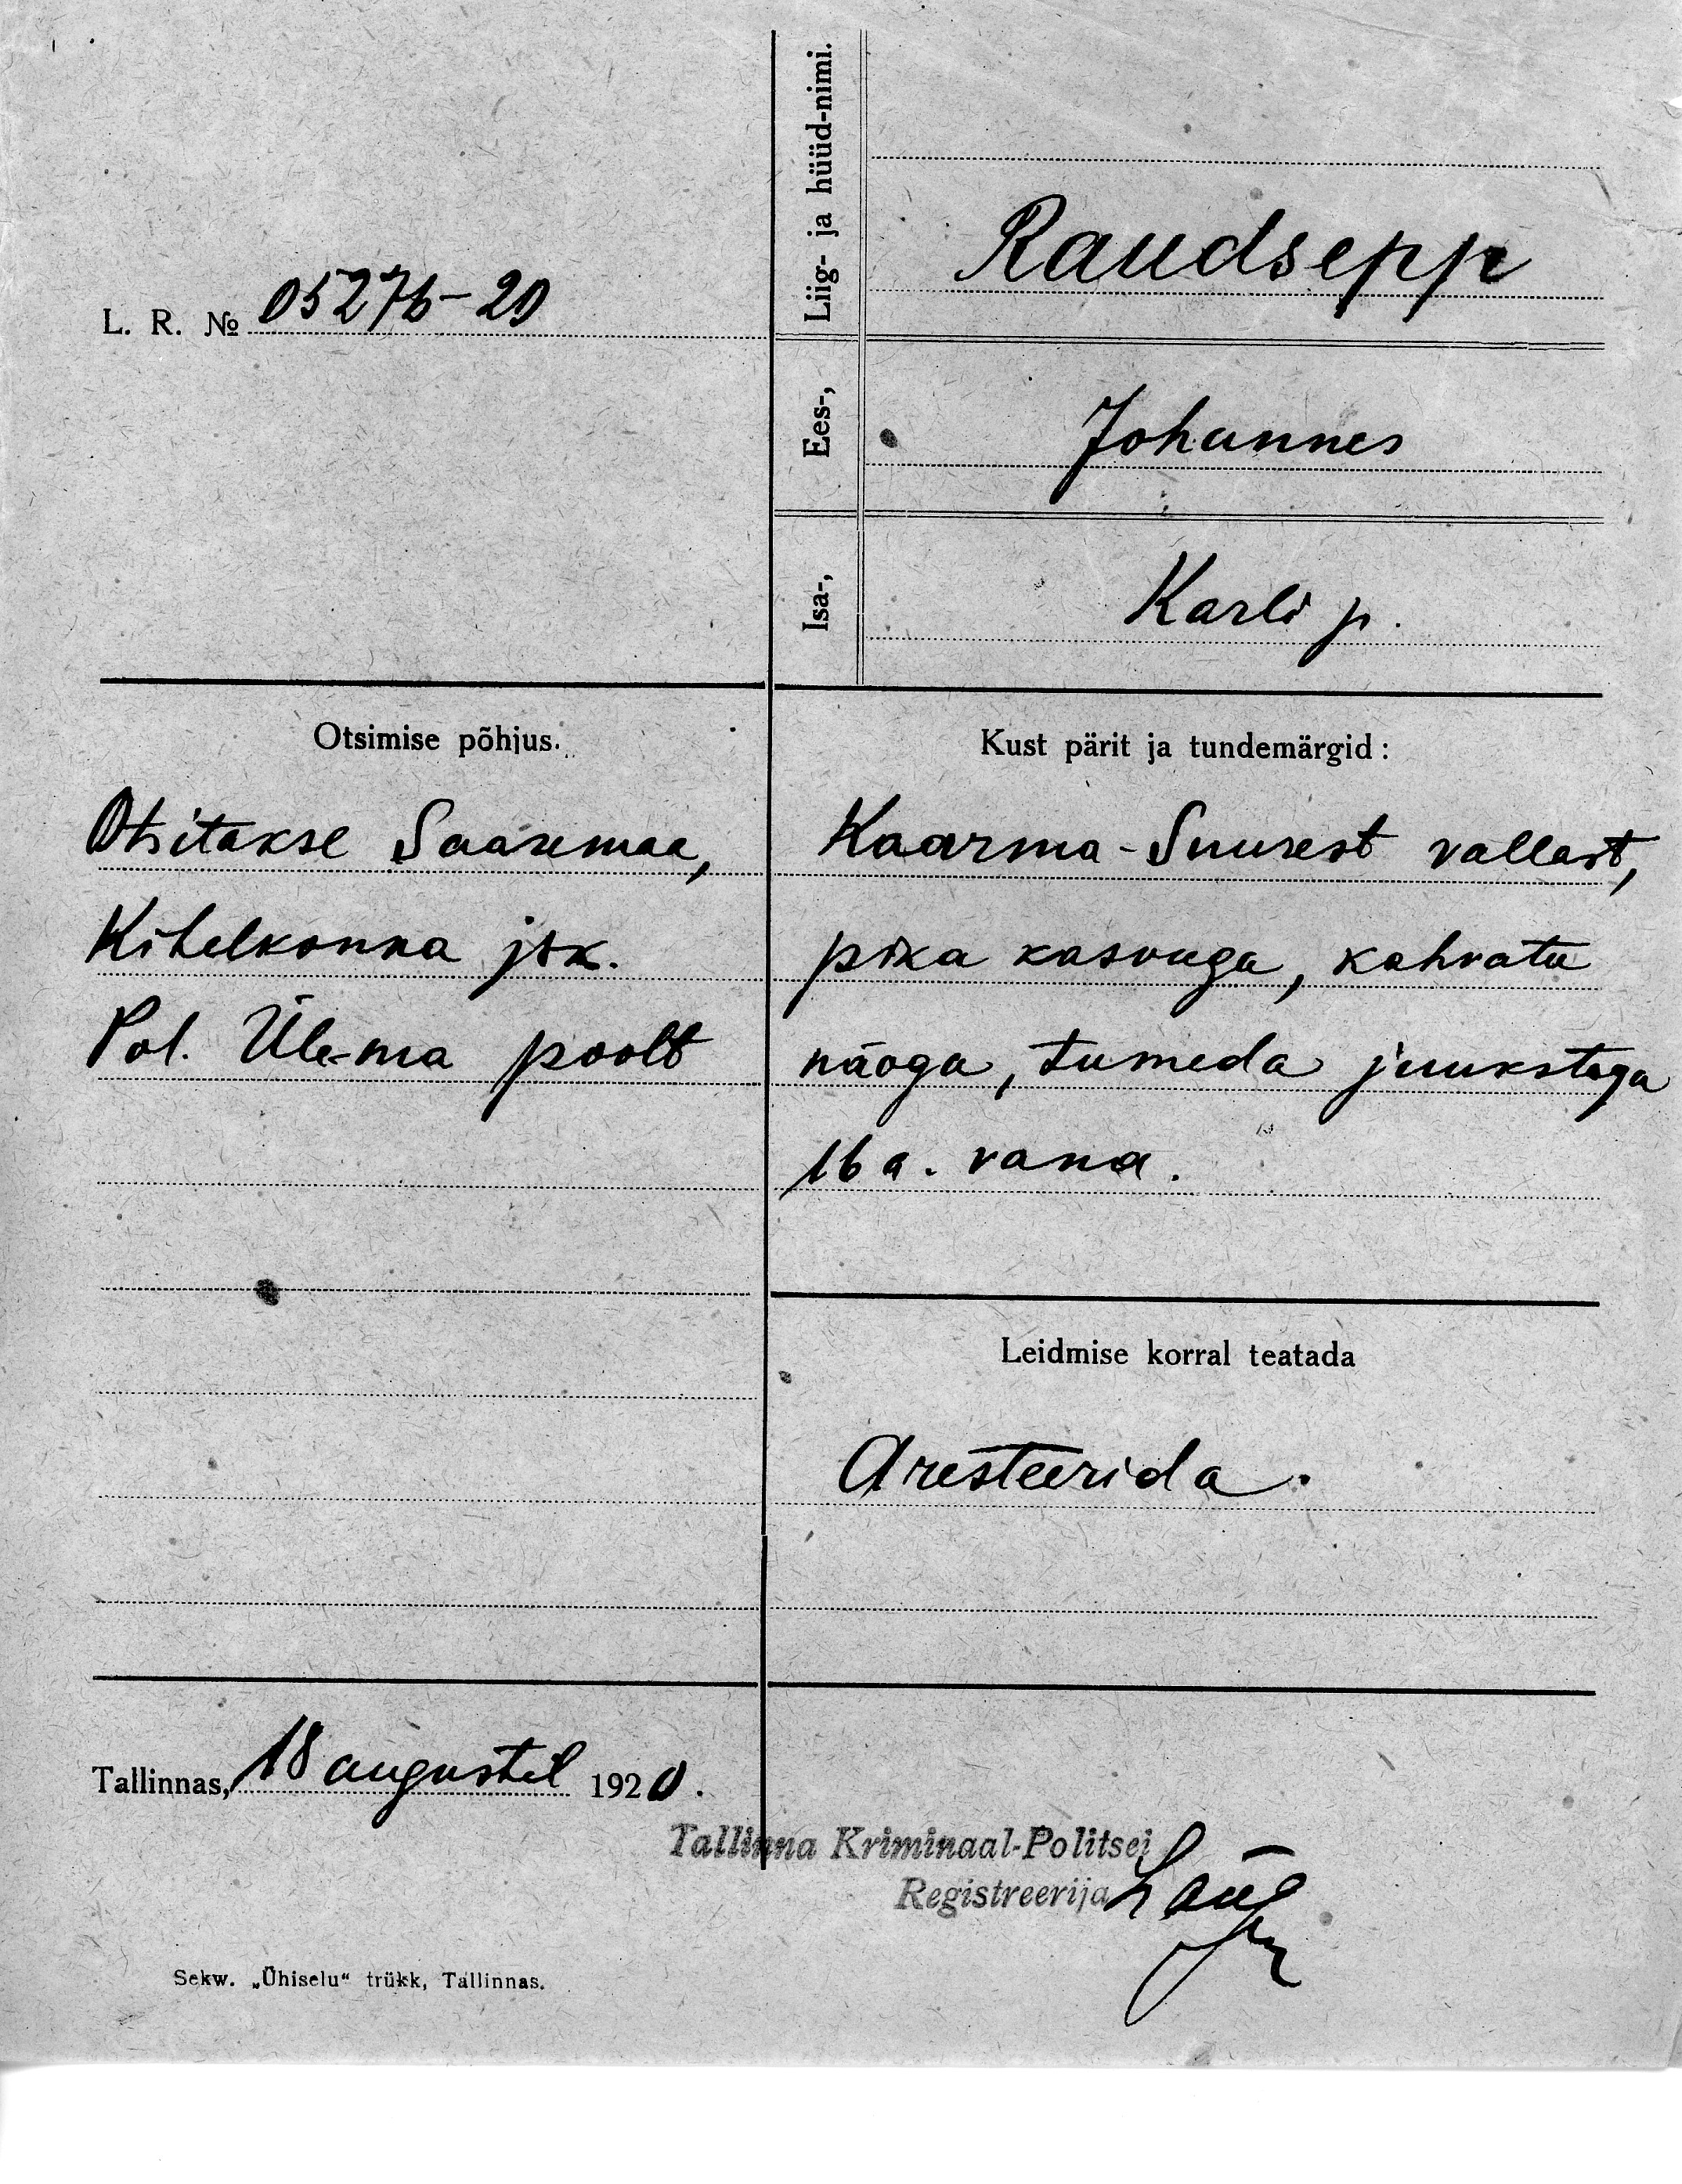 L. R. № 05276-20
Liig- ja hüüd-nimi.
Raudsepp
Ees-,
Johannes
Isa-,
Karli p.
Otsimise põhjus.
Otsitakse Saaremaa,
Kihelkonna jsk.
Pol. Ülema poolt
Kust pärit ja tundemärgid:
Kaarma-Suurest vallast,
pika kasvuga, kahvatu
näoga, tumeda juukstega
16 a. vana.
Leidmise korral teatada
Aresteerida.
Tallinnas, 18 augustil 1920.
Tallinna Kriminaal-Politsei
Registreerija
Sekw. „Ühiselu“ trükk, Tallinnas.